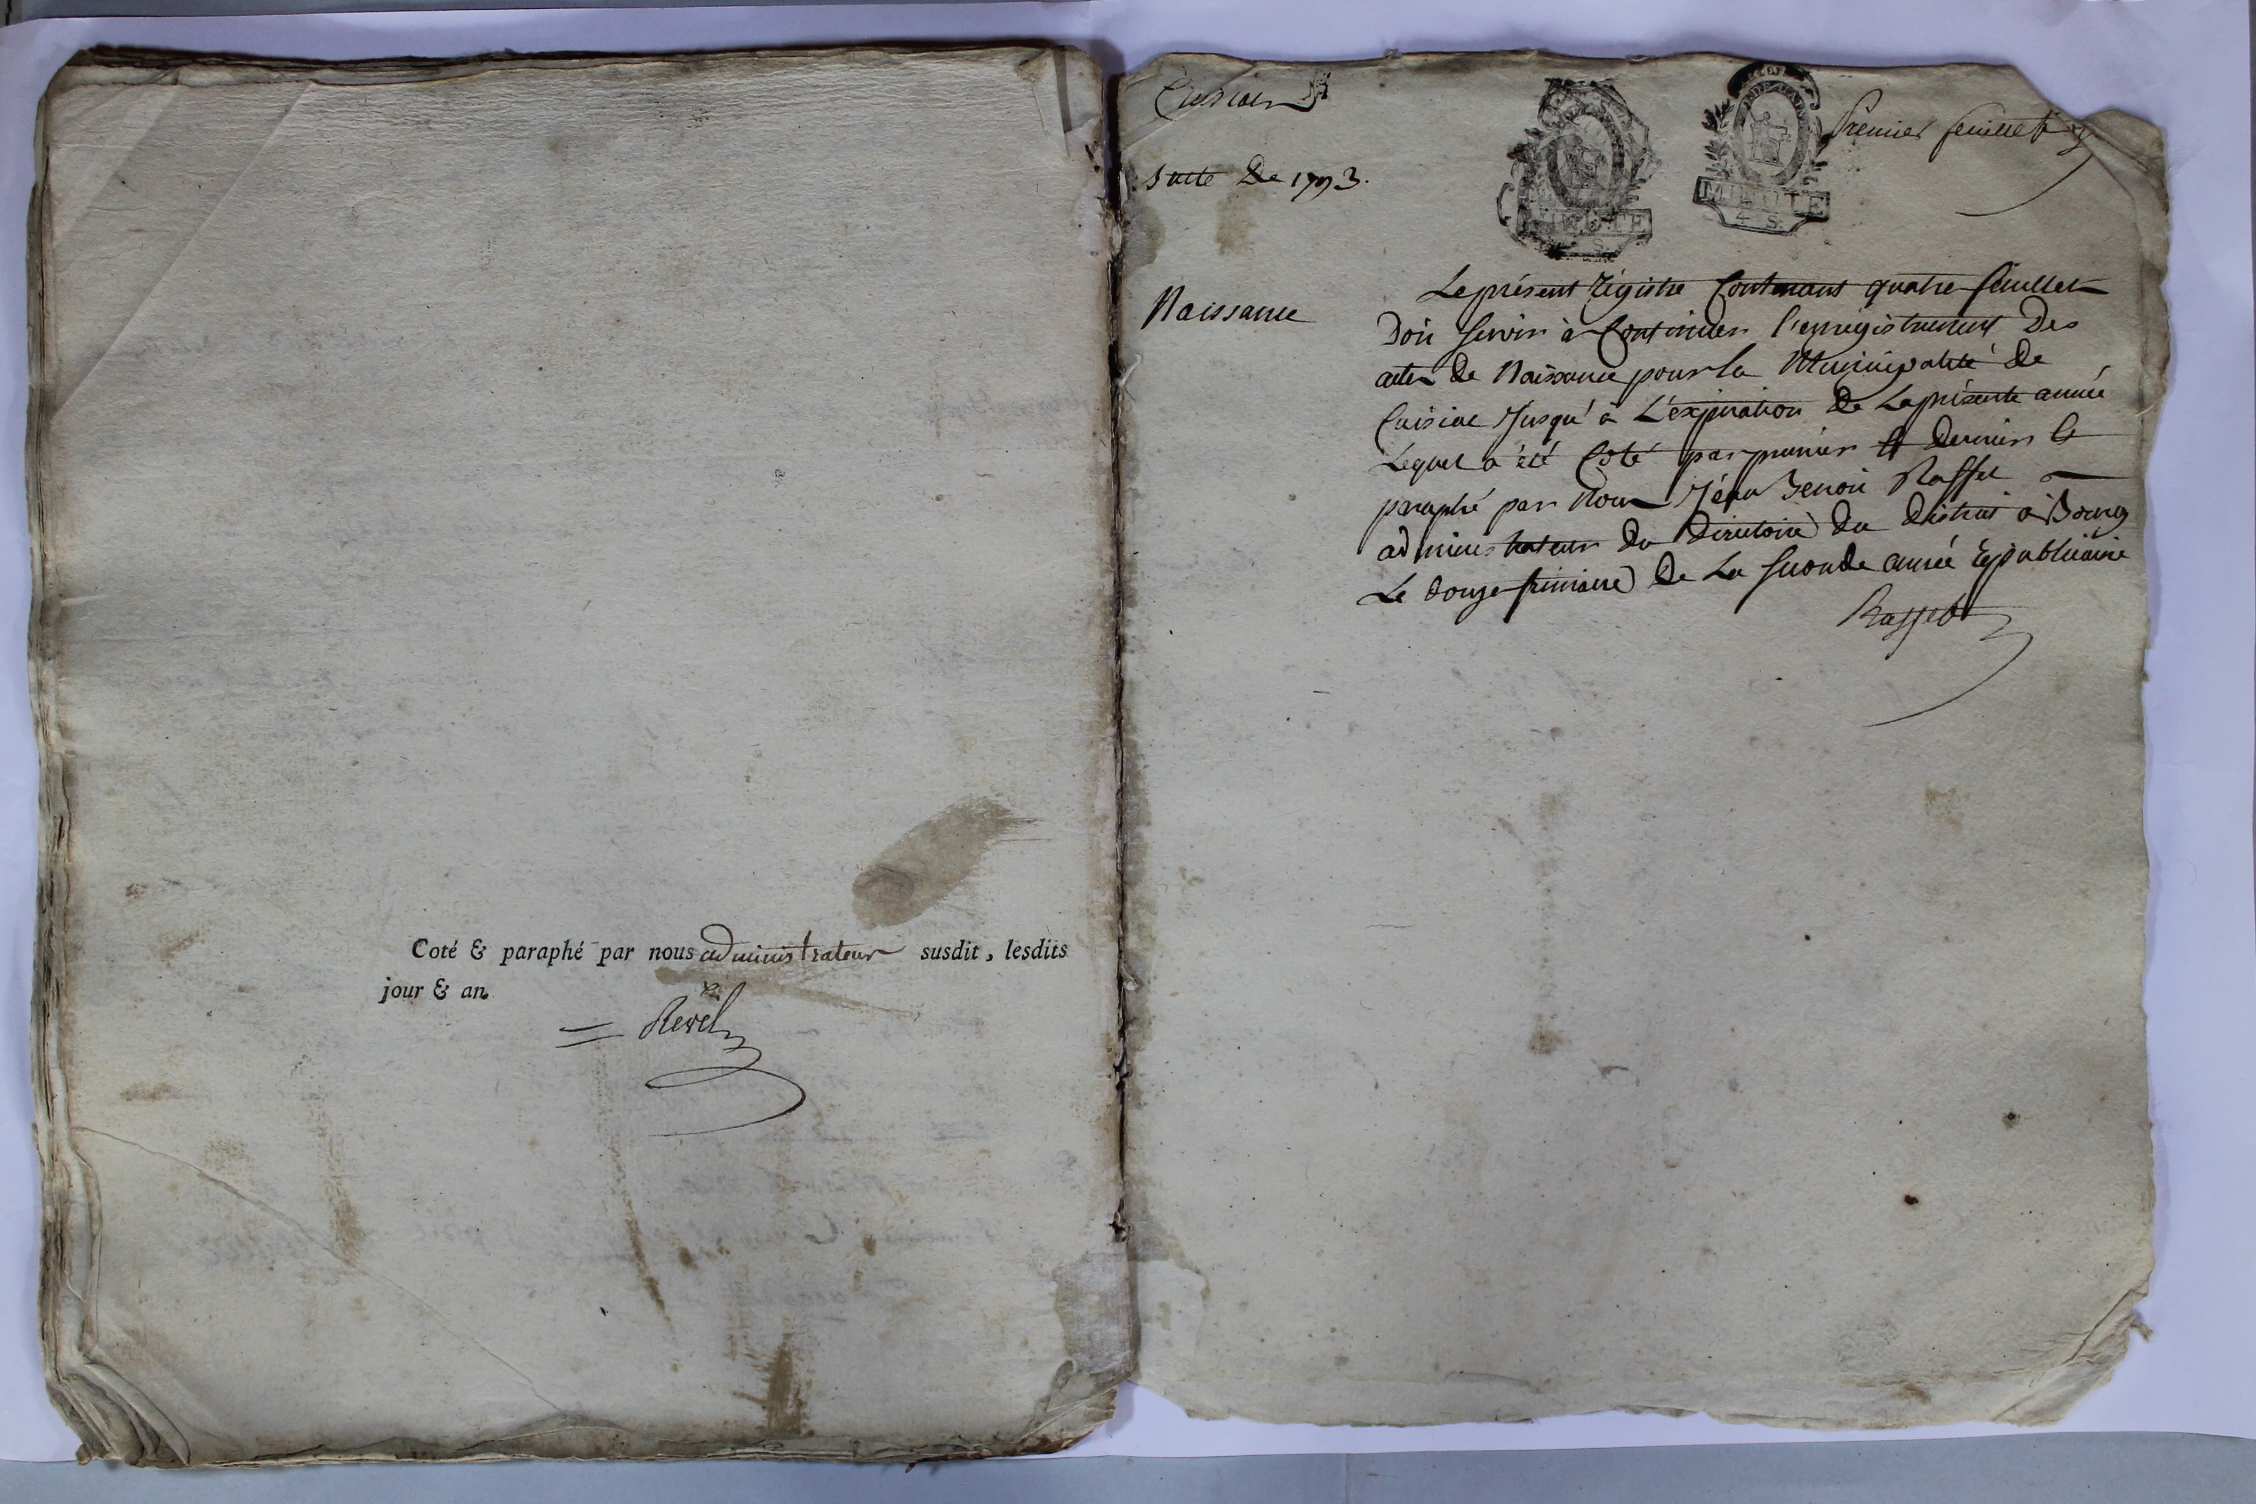 Coté & paraphé par nous administrateur susdit, lesdits
jour & an.
Revel
Cuisiat
Premier feuillet
suite De 1793.
MINUTE
4 S.
MINUTE
4 S.
Naissance
Le présent régistre Contenant quatre feuillet
Doit servir à Continuer l'enregistrement Des
actes de Naissance pour la Municipalité de
Cuisiat Jusqu'à L'expiration De La présente année
Lequel a été Coté par premier et dernier &
paraphé par Nous Jéan Benoit Raffet
administrateur du Directoire du District à Bourg
Le douze frimaire De La seconde année républicaine
Raffet